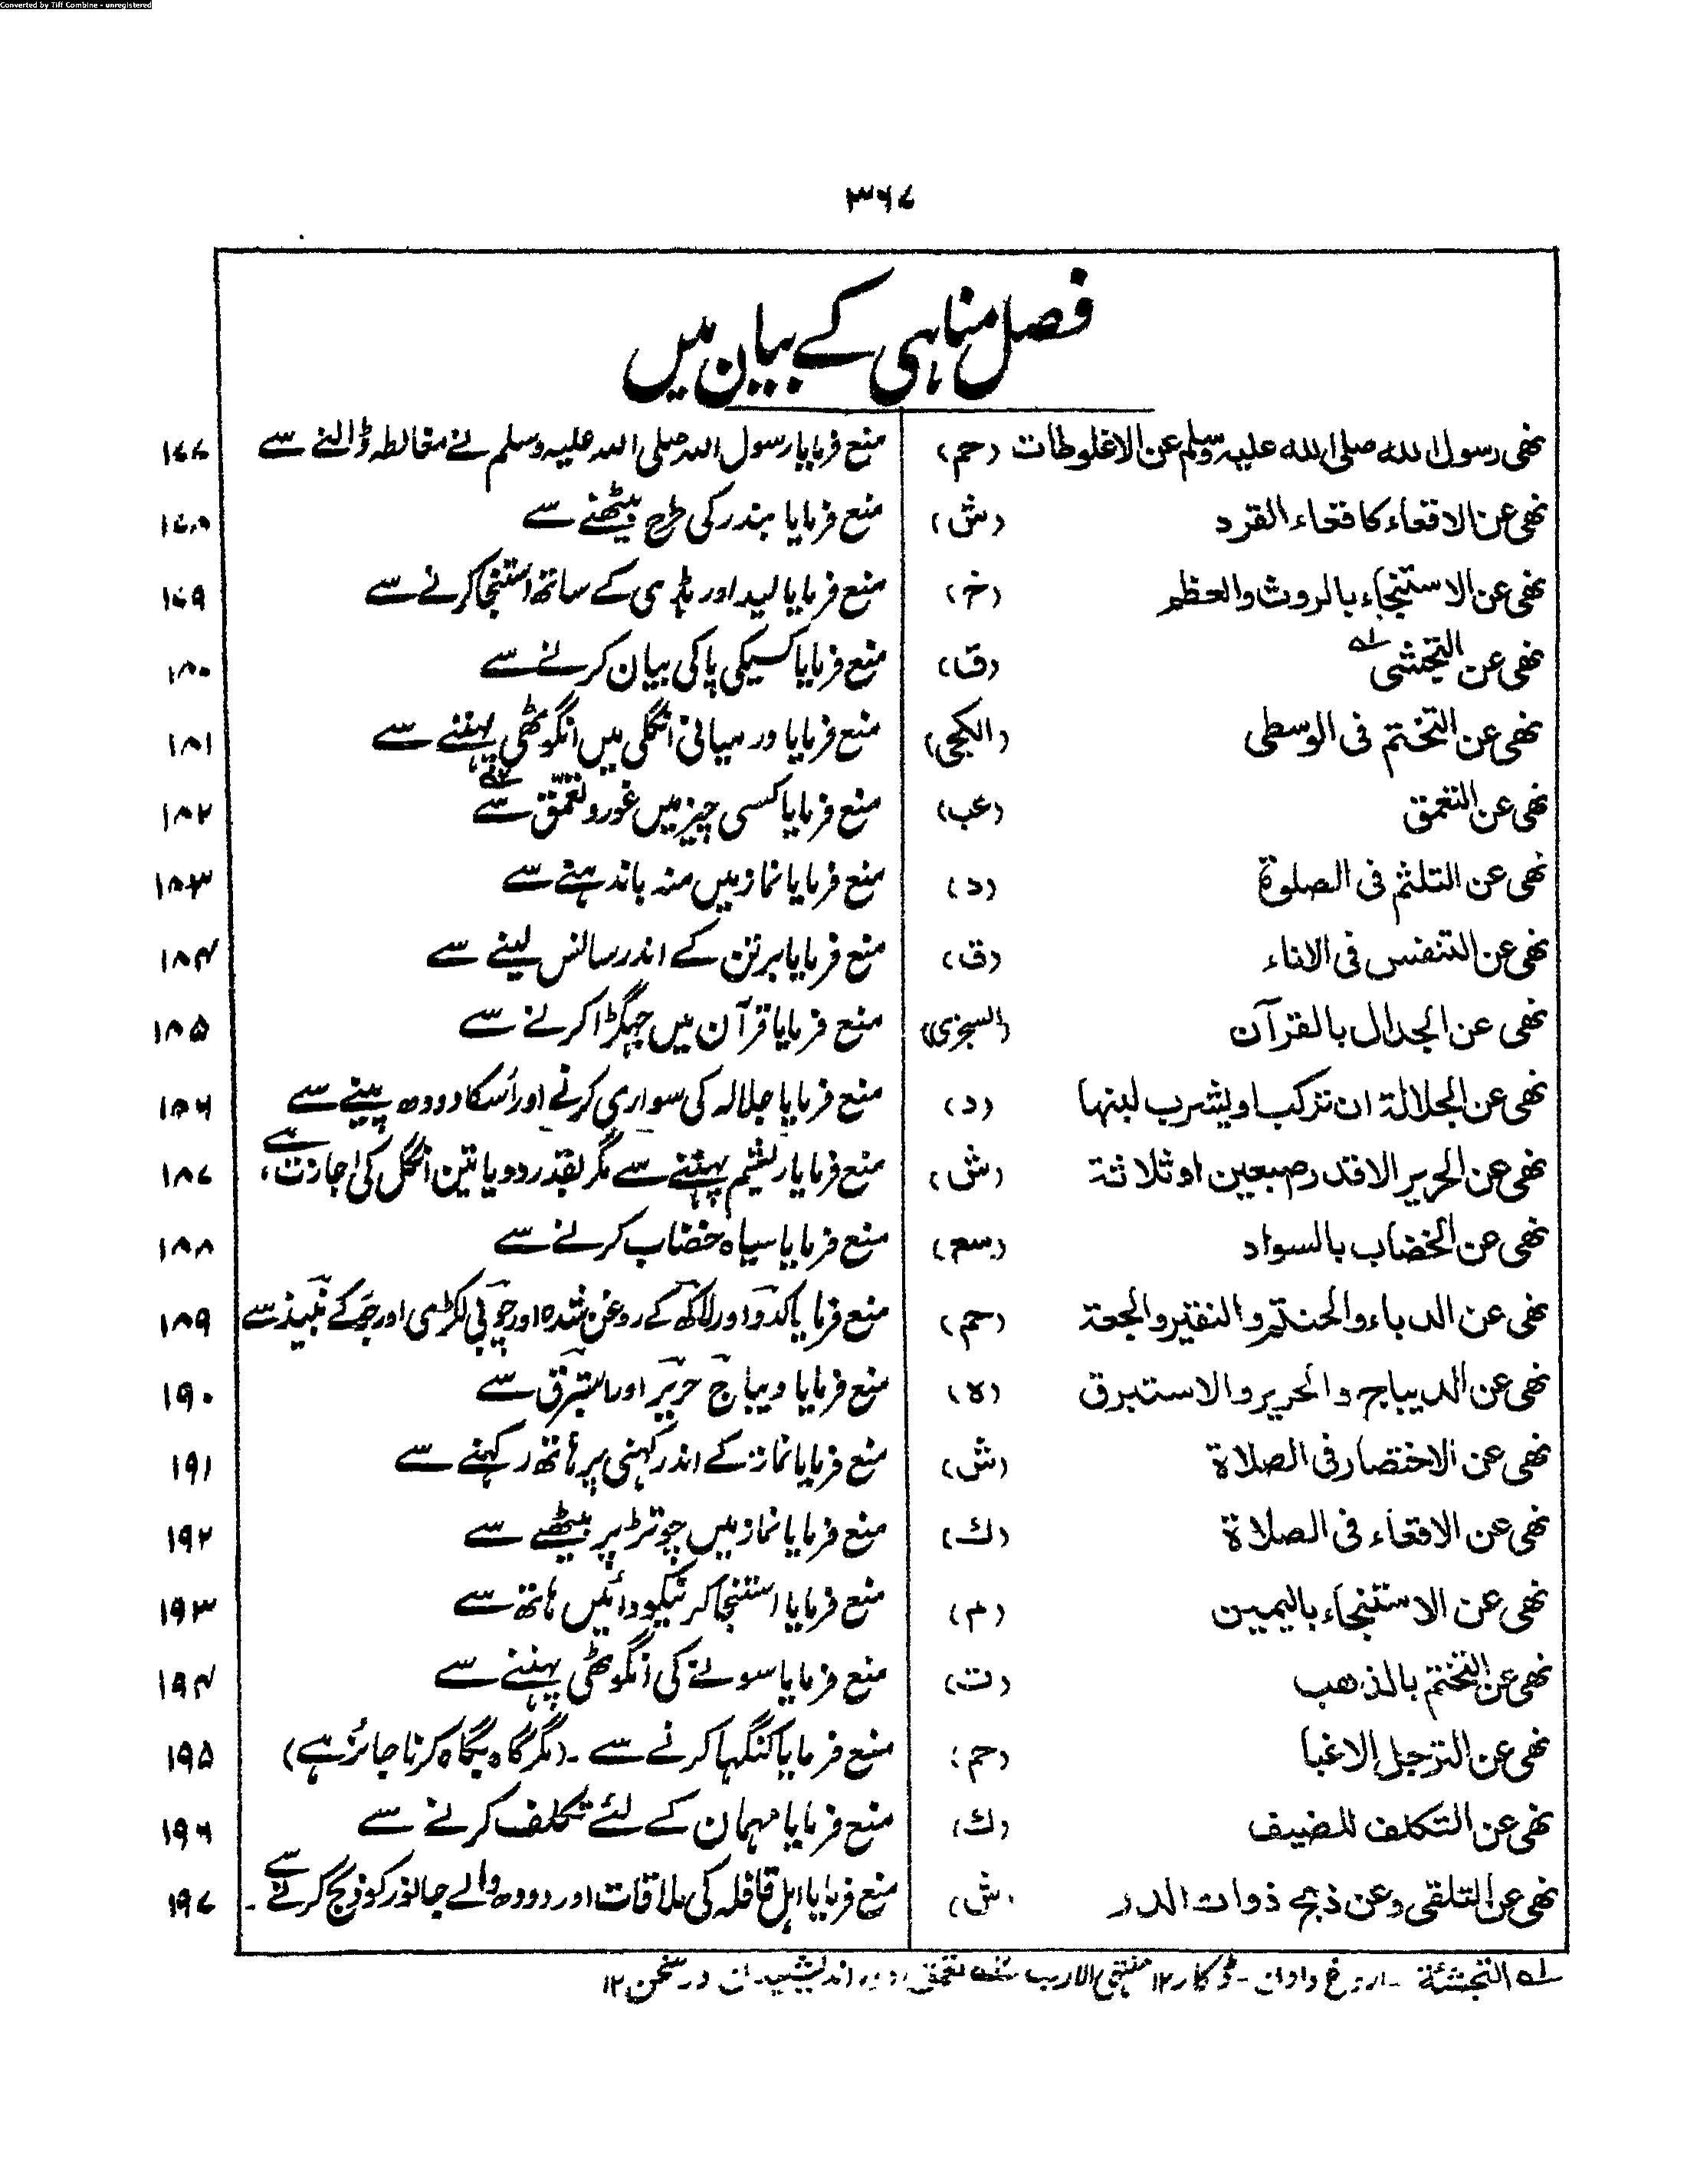 Converted by Tiff Combine - unregistered
۳۶۷
فصل مناہی کے بیان میں
نھی رسول الله صلی الله علیه وسلم عن الاغلوطات (حم) منع فرمایا رسول اللہ صلی اللہ علیہ وسلم نے مغالطہ ڈالنے سے ۱۷۷
نھی عن الاقعاء کاقعاء القرد (ش) منع فرمایا بندر کی طرح بیٹھنے سے ۱۷۸
نھی عن الاستنجاء بالروث والعظم (خ) منع فرمایا لید اور ہڈی کے ساتھ استنجا کرنے سے ۱۷۹
نھی عن التجشی ؎۱ (ق) منع فرمایا کسیکی پاکی بیان کرنے سے ۱۸۰
نھی عن التختم فی الوسطی (الکجی) منع فرمایا درمیانی انگلی میں انگوٹھی پہننے سے ۱۸۱
نھی عن التعمق (عب) منع فرمایا کسی چیز میں غور و تعمق سے ؎۲ ۱۸۲
نھی عن التلثم فی الصلوة (د) منع فرمایا نماز میں منہ باندہنے سے ۱۸۳
نھی عن التنفس فی الاناء (ق) منع فرمایا برتن کے اندر سانس لینے سے ۱۸۴
نھی عن الجدال بالقرآن (السجزی) منع فرمایا قرآن میں جہگڑا کرنے سے ۱۸۵
نھی عن الجلالة ان ترکب او یشرب لبنها (د) منع فرمایا جلالہ کی سواری کرنے اور اُسکا دودہ پینے سے ۱۸۶
نھی عن الحریر الا قدر صبعین او ثلاثة (ش) منع فرمایا ریشم پہننے سے مگر بقدر دو یا تین انگل کی اجازت ہے، ۱۸۷
نھی عن الخضاب بالسواد (سع) منع فرمایا سیاہ خضاب کرنے سے ۱۸۸
نھی عن الدباء والحنتم والنقیر والجعة (حم) منع فرمایا کدو اور لاکھ کے روغن شدہ اور چوبی لکڑی اور جو کے نبیذ سے ۱۸۹
نھی عن الدیباج والحریر والاستبرق (ہ) منع فرمایا دیباج حریر اور استبرق سے ۱۹۰
نھی عن الاختصار فی الصلاة (ش) منع فرمایا نماز کے اندر کہنی پر ہاتھ رکہنے سے ۱۹۱
نھی عن الاقعاء فی الصلاة (ك) منع فرمایا نماز میں چوتڑ پر بیٹھنے سے ۱۹۲
نھی عن الاستنجاء بالیمین (م) منع فرمایا استنجا کرنیکو دائیں ہاتھ سے ۱۹۳
نھی عن التختم بالذهب (ت) منع فرمایا سونے کی انگوٹھی پہننے سے ۱۹۴
نھی عن الترجل الا غبا (حم) منع فرمایا کنگہا کرنے سے ۔ (مگر گاہ بگاہ کرنا جائز ہے) ۱۹۵
نھی عن التکلف للضیف (ك) منع فرمایا مہمان کے لئے تکلف کرنے سے ۱۹۶
نھی عن التلقی وعن ذبح ذوات الدر (ش) منع فرمایا اہل قافلہ کی ملاقات اور دودہ والے جانور کو ذبح کرنے سے ۔ ۱۹۷
؎۱ التجشئة ۔ اروغ دادن ۔ ڈکار ۱۲ منتهی الارب ؎۲ تعمق دور اندیشیدن در سخن ۱۲